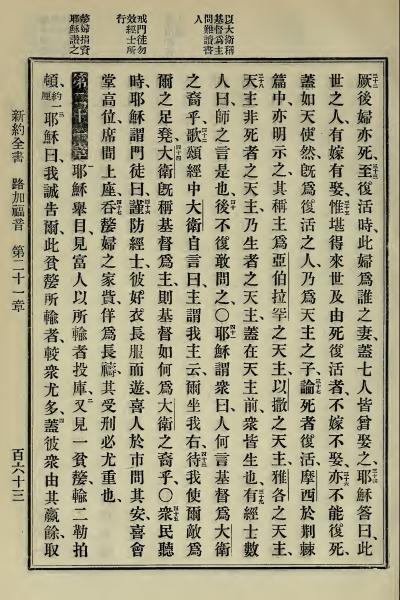 以大衛稱
基督爲主
問難讀書
人
戒門徒勿
效經士所
行
嫠婦捐資
耶穌讚之
三十二厥後婦亦死、三十三至復活時此婦爲誰之妻蓋七人皆曾娶之、三十四耶穌答曰此
世之人有嫁有娶、三十五惟堪得來世及由死復活者、不嫁不娶、三十六亦不能復死、
蓋如天使然既爲復活之人乃爲天主之子、三十七論死者復活摩西於荊棘
篇中亦明示之、其稱主爲亞伯拉罕之天主、以撒之天主、雅各之天主、
三十八天主非死者之天主乃生者之天主、蓋在天主前衆皆生也、三十九有經士數
人曰、師之言是也、四十後不復敢問之、○四十一耶穌謂衆曰、人何言基督爲大衛
之裔乎、四十二歌頌經中大衛自言曰、主謂我主云、爾坐我右、四十三待我使爾敵爲
爾之足凳、四十四大衛既稱基督爲主、則基督如何爲大衛之裔乎、○四十五衆民聽
時、耶穌謂門徒曰、四十六謹防經士、彼好衣長服而遊、喜人於市問其安、喜會
堂高位、席間上座、四十七呑嫠婦之家貲、佯爲長禱、其受刑必尤重也、
第二十一章 一耶穌舉目見富人以所輸者投庫、二又見一貧嫠輸二勒拍
頓、約一厘三耶穌曰、我誠吿爾、此貧嫠所輸者、較衆尤多、四蓋彼衆由其贏餘取
新約全書 路加福音 第二十一章 百六十三